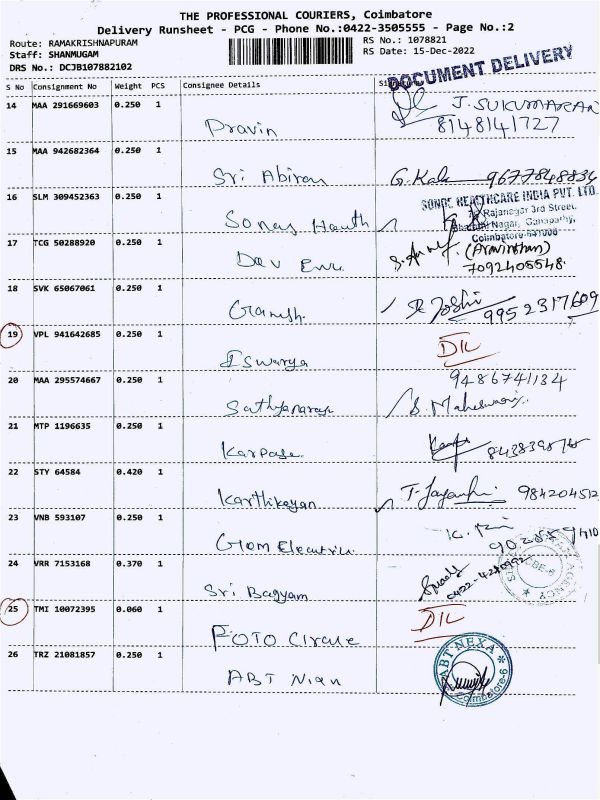 THE PROFESSIONAL COURIERS, Coimbatore
Delivery Runsheet - PCG - Phone No.:0422-3505555 - Page No.:2
Route: RAMAKRISHNAPURAM
RS No.: 1078821
Staff: SHANMUGAM
RS Date: 15-Dec-2022
DRS No.: DCJB107882102
DOCUMENT DELIVERY
S No Consignment No Weight PCS Consignee Details
14 MAA 291669603 0.250 1
J. SUKUMARAN
Pravin 8148141727
15 MAA 942682364 0.250 1
Sri Abiram G. Kala 9677848834
16 SLM 309452363 0.250 1
SONDE HEALTHCARE INDIA PVT. LTD.
Rajanagar 3rd Street,
Nagar, Ganapathy,
Coimbatore-641006
17 TCG 50288920 0.250 1
(Aravinthan)
Dev 7092405548
18 SVK 65067061 0.250 1
Ganesh Joshi 9952317609
19 VPL 941642685 0.250 1
Iswarya DIL
20 MAA 295574667 0.250 1
9486741134
S. Maheswari
21 MTP 1196635 0.250 1
Karpaga
22 STY 64584 0.420 1
Karthikeyan T. Jayanthi 984204512
23 VNB 593107 0.250 1
Gom Electric
24 VRR 7153168 0.370 1
Sri Bagyam
CBE-6
25 TMI 10072395 0.060 1
FOTO Circle DIL
26 TRZ 21081857 0.250 1
ABT Nian
ABT NEXA
Coimbatore-6